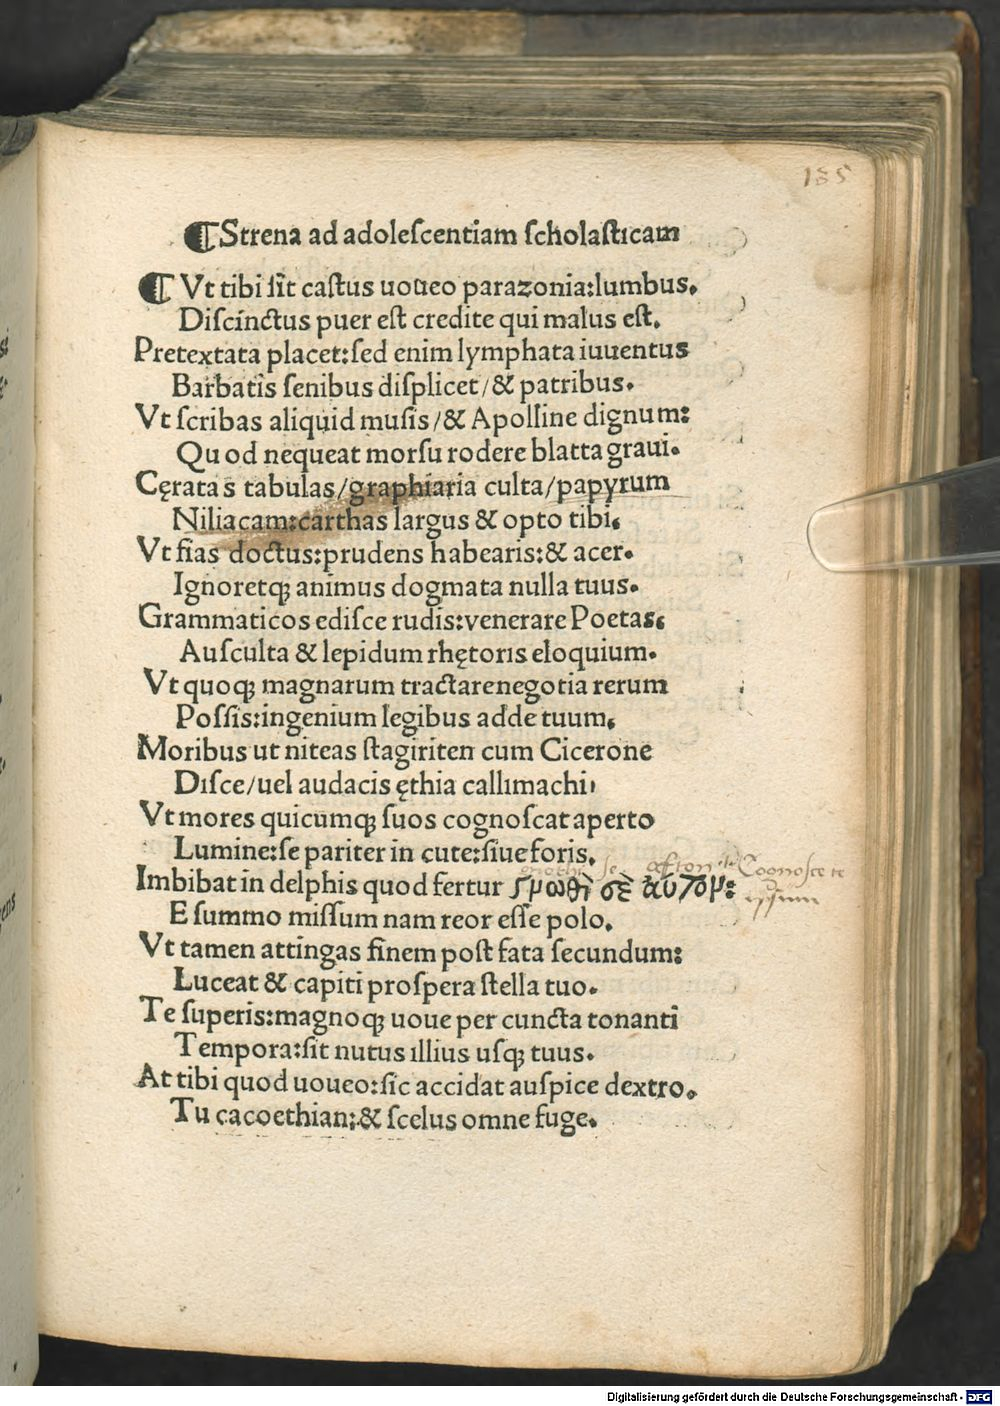 135
¶Strena ad adoleſcentiam ſcholaſticam
¶ Vt tibi ſit caſtus uoueo parazonia:lumbus.
Diſcinctus puer eſt credite qui malus eſt.
Pretextata placet:ſed enim lymphata iuuentus
Barbatis ſenibus diſplicet/& patribus.
Vt ſcribas aliquid muſis/& Apolline dignum:
Quod nequeat morſu rodere blatta graui.
Cęratas tabulas/graphiaria culta/papyrum
Niliacam:carthas largus & opto tibi.
Vt fias doctus:prudens habearis:& acer.
Ignoretqꝫ animus dogmata nulla tuus.
Grammaticos ediſce rudis:venerare Poetas.
Auſculta & lepidum rhętoris eloquium.
Vt quoqꝫ magnarum tractare negotia rerum
Poſſis:ingenium legibus adde tuum.
Moribus ut niteas ſtagiriten cum Cicerone
Diſce/uel audacis ęthia callimachi,
Vt mores quicumqꝫ ſuos cognoſcat aperto
Lumine:ſe pariter in cute:ſiue foris.
gnothi se afton
Cognosce te
Imbibat in delphis quod fertur γνωθὶ σὲ ἀυτον:
ipsum
E ſummo miſſum nam reor eſſe polo.
Vt tamen attingas finem poſt fata ſecundum:
Luceat & capiti proſpera ſtella tuo.
Te ſuperis:magnoqꝫ uoue per cuncta tonanti
Tempora:ſit nutus illius uſqꝫ tuus.
At tibi quod uoueo:ſic accidat auſpice dextro.
Tu cacoethian:& ſcelus omne fuge.
Digitalisierung gefördert durch die Deutsche Forschungsgemeinschaft - DFG